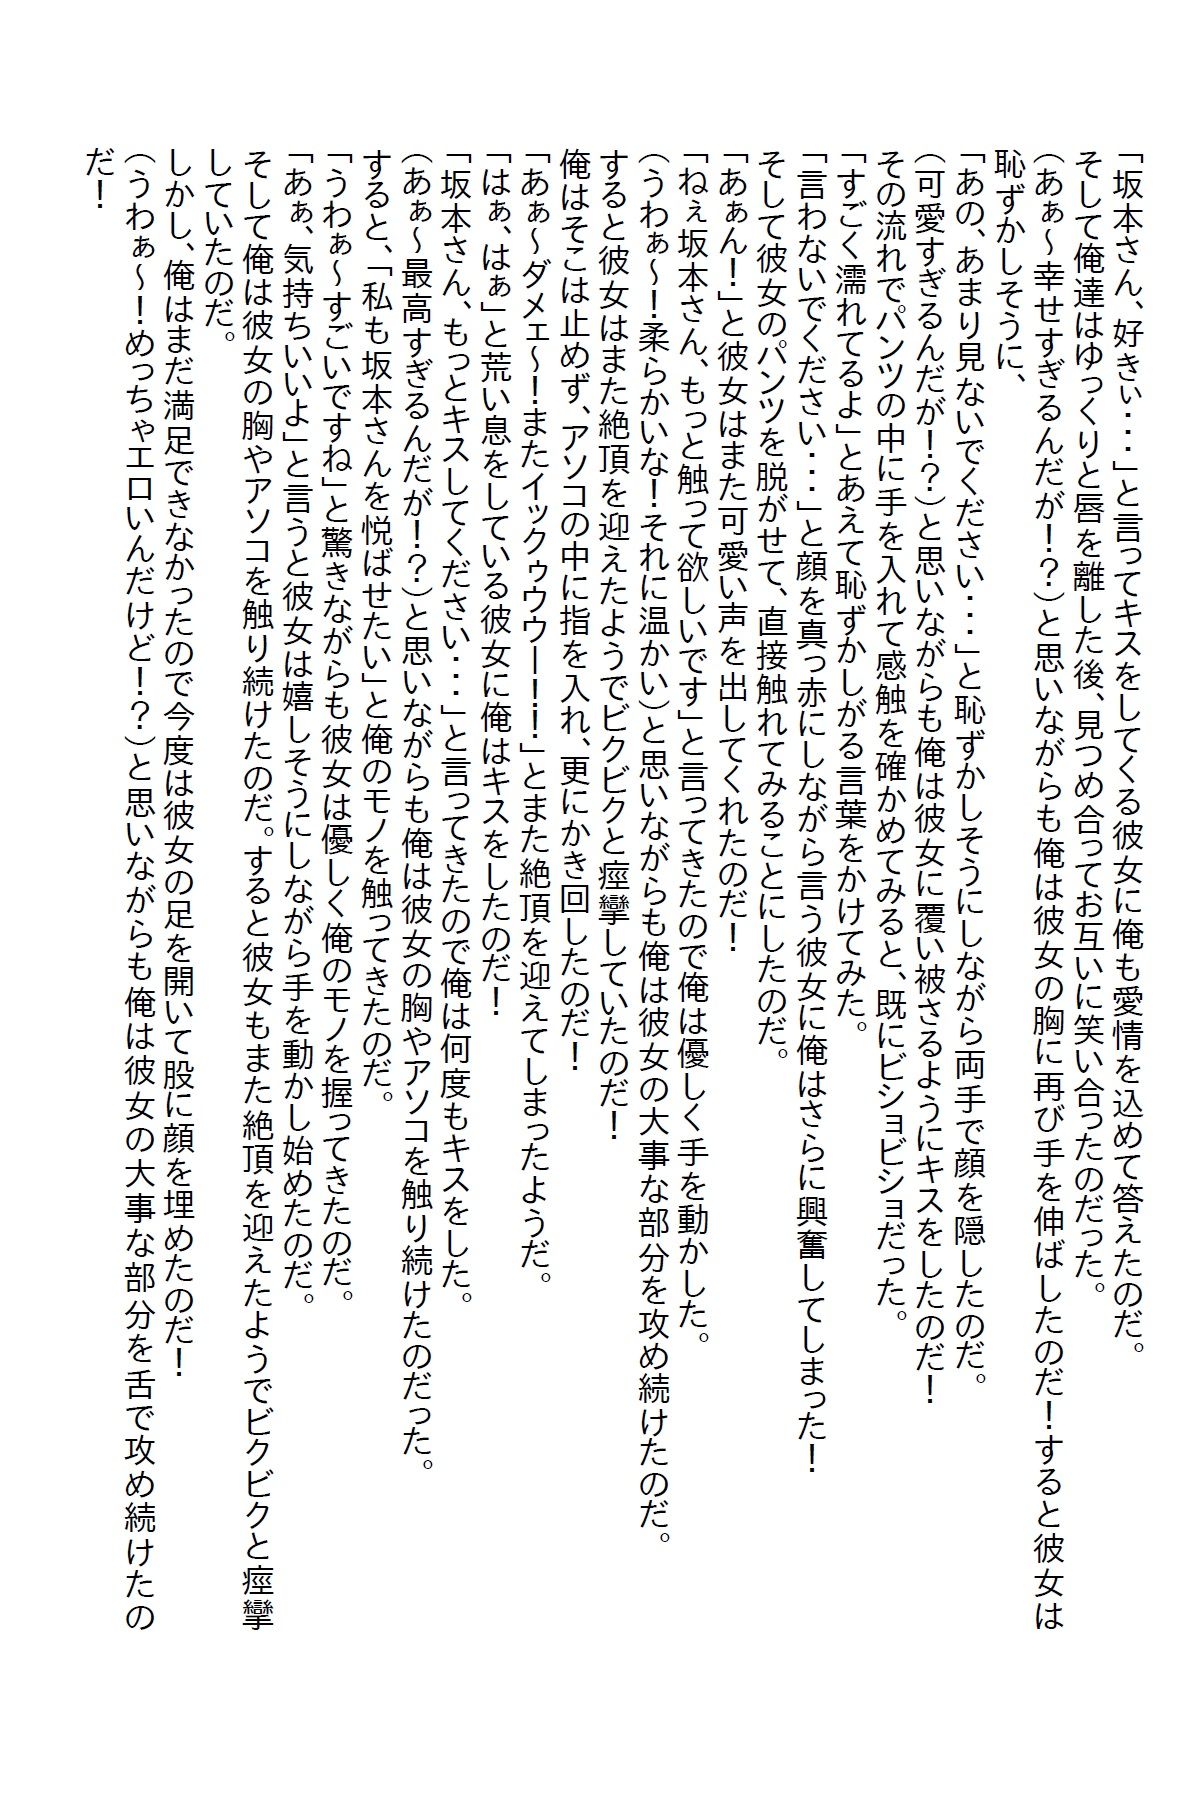 「坂本さん、好きぃ・・・」と言ってキスをしてくる彼女に俺も愛情を込めて答えたのだ。
そして俺達はゆっくりと唇を離した後、見つめ合ってお互いに笑い合ったのだった。
（あぁ～幸せすぎるんだが！？）と思いながらも俺は彼女の胸に再び手を伸ばしたのだ！すると彼女は
恥ずかしそうに、
「あの、あまり見ないでください・・・」と恥ずかしそうにしながら両手で顔を隠したのだ。
（可愛すぎるんだが！？）と思いながらも俺は彼女に覆い被さるようにキスをしたのだ！
その流れでパンツの中に手を入れて感触を確かめてみると、既にビショビショだった。
「すごく濡れてるよ」とあえて恥ずかしがる言葉をかけてみた。
「言わないでください・・・」と顔を真っ赤にしながら言う彼女に俺はさらに興奮してしまった！
そして彼女のパンツを脱がせて、直接触れてみることにしたのだ。
「あぁん！」と彼女はまた可愛い声を出してくれたのだ！
「ねぇ坂本さん、もっと触って欲しいです」と言ってきたので俺は優しく手を動かした。
（うわぁ～！柔らかいな！それに温かい）と思いながらも俺は彼女の大事な部分を攻め続けたのだ。
すると彼女はまた絶頂を迎えたようでビクビクと痙攣していたのだ！
俺はそこは止めず、アソコの中に指を入れ、更にかき回したのだ！
「あぁ～ダメェ～！またイックゥウウー！！」とまた絶頂を迎えてしまったようだ。
「はぁ、はぁ」と荒い息をしている彼女に俺はキスをしたのだ！
「坂本さん、もっとキスしてください・・・」と言ってきたので俺は何度もキスをした。
（あぁ～最高すぎるんだが！？）と思いながらも俺は彼女の胸やアソコを触り続けたのだった。
すると、「私も坂本さんを悦ばせたい」と俺のモノを触ってきたのだ。
「うわぁ～すごいですね」と驚きながらも彼女は優しく俺のモノを握ってきたのだ。
「あぁ、気持ちいいよ」と言うと彼女は嬉しそうにしながら手を動かし始めたのだ。
そして俺は彼女の胸やアソコを触り続けたのだ。すると彼女もまた絶頂を迎えたようでビクビクと痙攣
していたのだ。
しかし、俺はまだ満足できなかったので今度は彼女の足を開いて股に顔を埋めたのだ！
（うわぁ～！めっちゃエロいんだけど！？）と思いながらも俺は彼女の大事な部分を舌で攻め続けたの
だ！